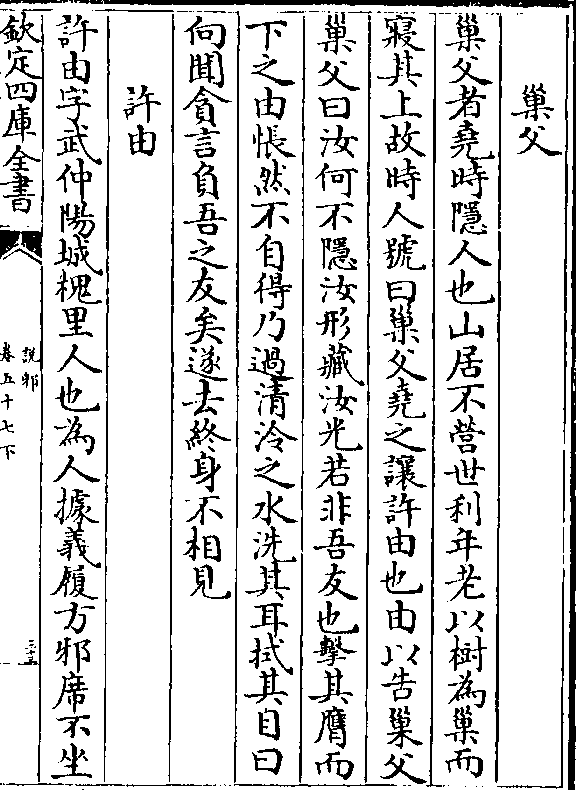 巢父
巢父者堯時隱人也山居不營世利年老以樹為巢而
寢其上故時人號曰巢父堯之讓許由也由以告巢父
巢父曰汝何不隱汝形藏汝光若非吾友也擊其膺而
下之由悵然不自得乃過清泠之水洗其耳拭其目曰
向聞貪言負吾之友矣遂去終身不相見
許由
許由字武仲陽城槐里人也為人據義履方邪席不坐
欽定四庫全書
說郛
卷五十七下
三十五